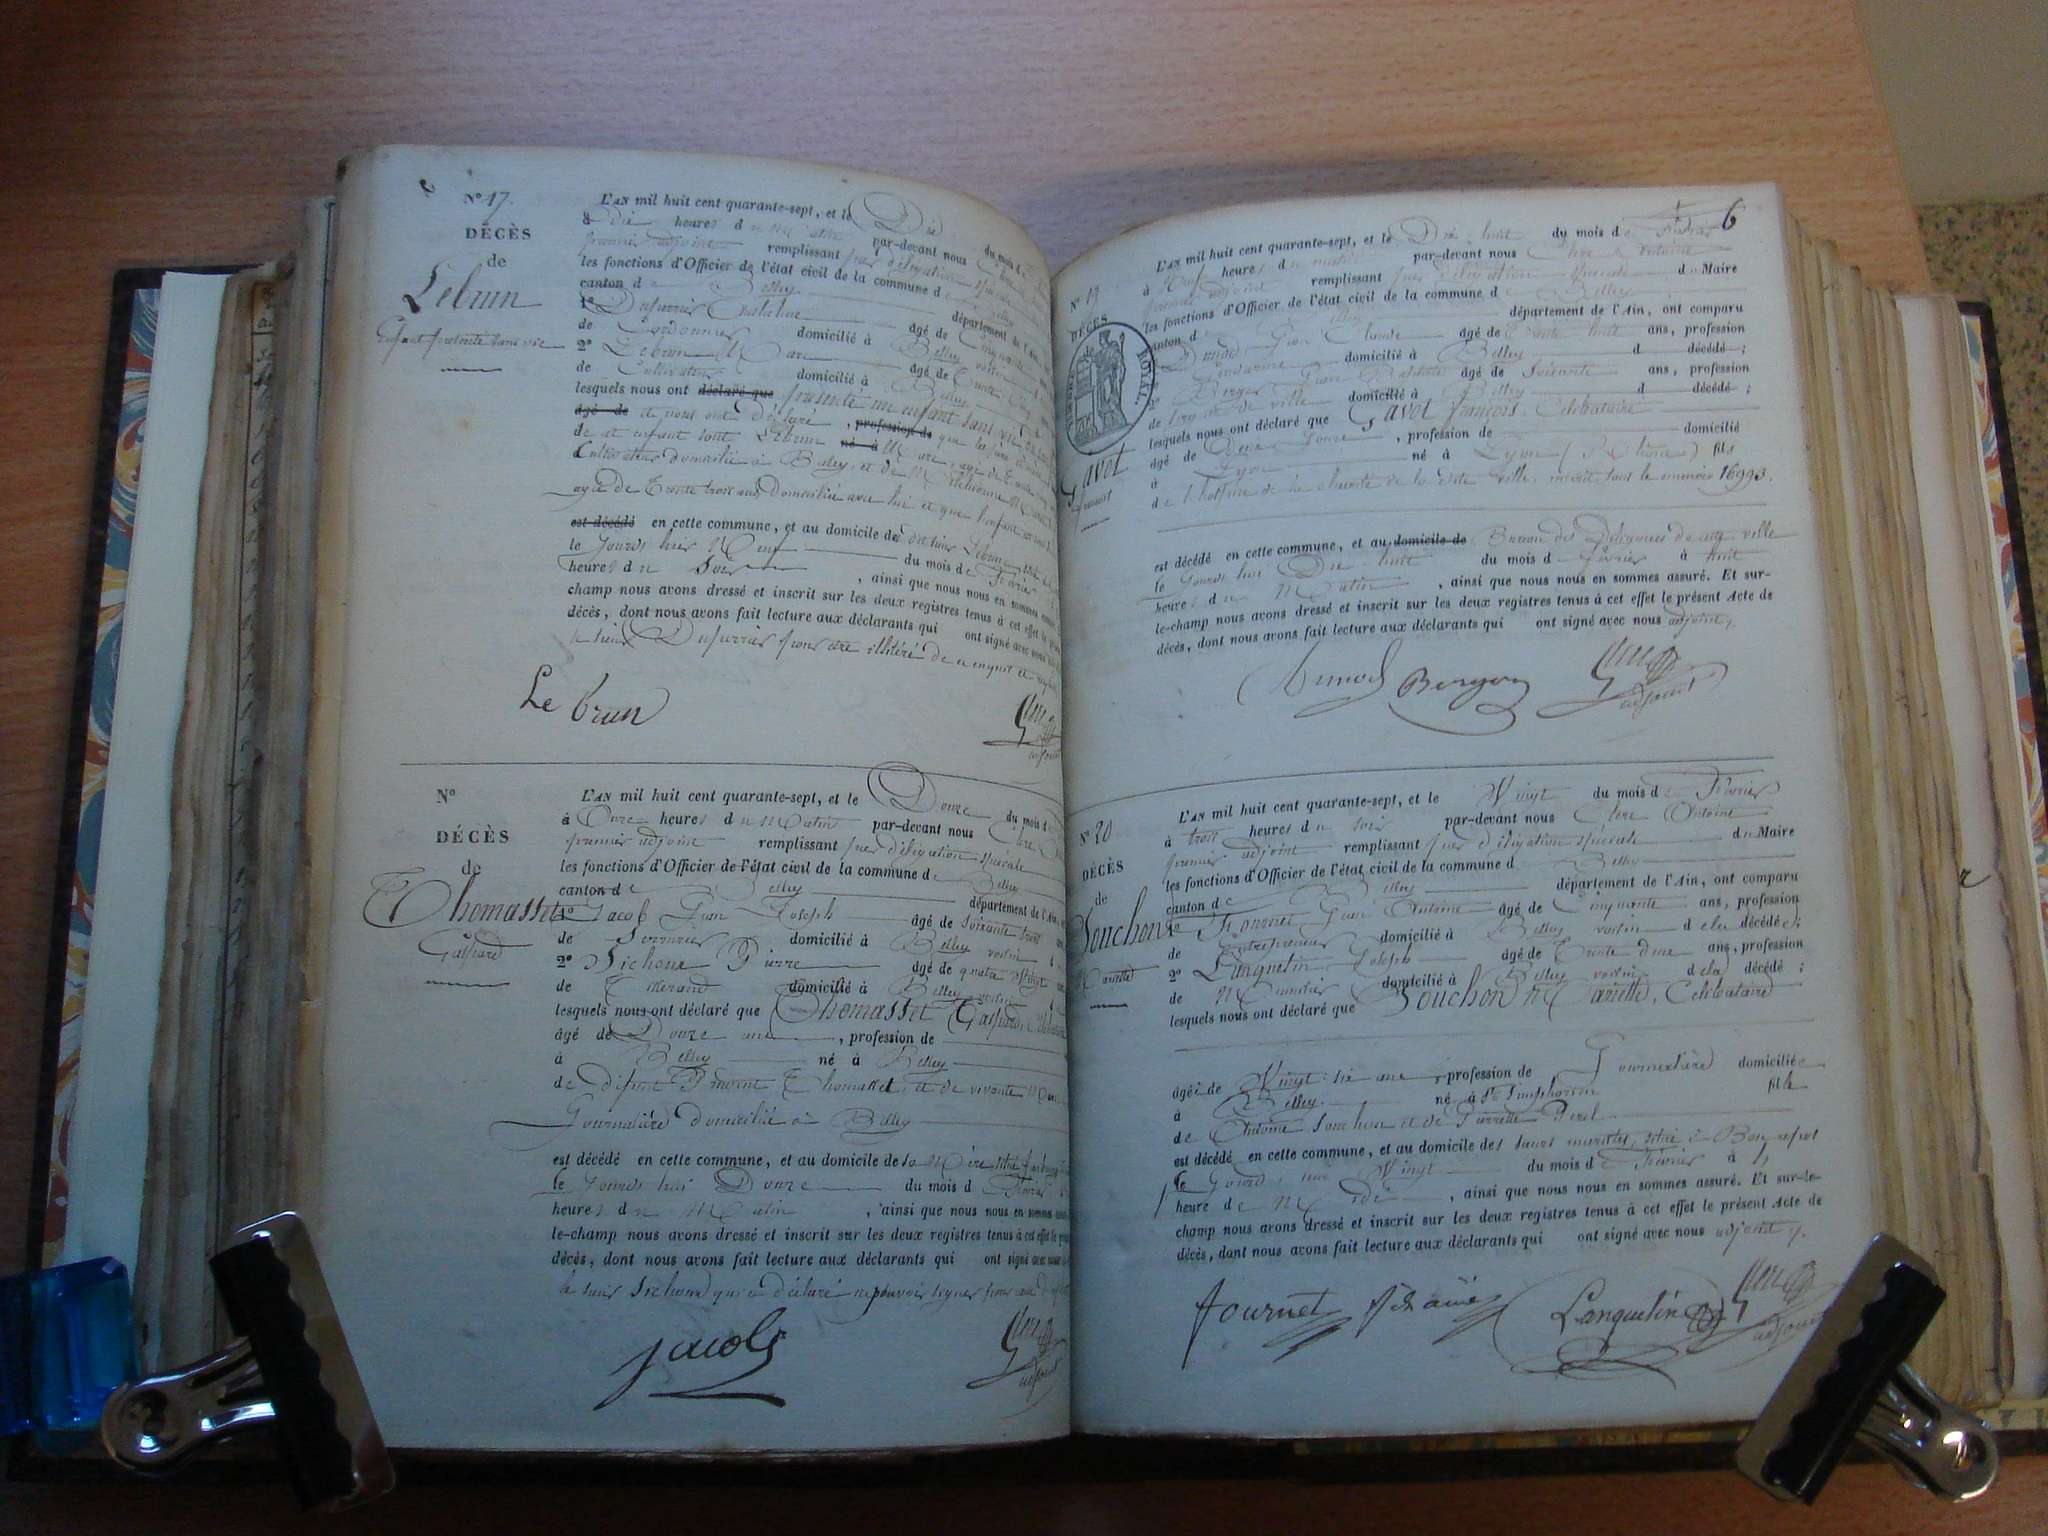 N° 17.
DÉCÈS
de
Lebrun
Enfant présenté sans vie
L'AN mil huit cent quarante-sept, et le Dix du mois d
à dix heures du matin par-devant nous
premier adjoint remplissant par délégation spéciale
les fonctions d'Officier de l'état civil de la commune de Belley
canton de Belley département de l'Ain
1° Anthelme âgé de
de Cordonnier domicilié à Belley voisin
2° Lebrun Marc âgé de Trente
de Cultivateur domicilié à Belley
lesquels nous ont déclaré que présenté un enfant sans vie
âgé de et nous ont déclaré, profession de que les
de cet enfant sont Lebrun né à Marc, âgé de Trente
Cultivateur domicilié à Belley, et de
âgée de Trente trois ans domiciliée avec lui et que l'enfant
est décédé en cette commune, et au domicile de dit sieur Lebrun
le jourd'hui du mois de Février
heures du Soir, ainsi que nous nous en sommes
champ nous avons dressé et inscrit sur les deux registres tenus à cet effet le
décès, dont nous avons fait lecture aux déclarants qui ont signé avec nous
le sieur pour être illitéré de ce enquit et requis
Le brun
adjoint
N°
DÉCÈS
de
Thomasset
Gaspard
L'AN mil huit cent quarante-sept, et le Douze du mois d
à Onze heures du Matin par-devant nous Clerc
premier adjoint remplissant par délégation spéciale
les fonctions d'Officier de l'état civil de la commune de Belley
canton de Belley département de l'Ain,
1° Jacob Jean Joseph âgé de soixante trois
de Serrurier domicilié à Belley voisin
2° Sichoux Pierre âgé de quatre vingt
de Tisserand domicilié à Belley voisin
lesquels nous ont déclaré que Thomasset Gaspard, Célibataire
âgé de Douze ans, profession de
à Belley né à Belley
de défunt Thomasset, et de vivante
Journalière domiciliée à Belley
est décédé en cette commune, et au domicile de sa Mère situé faubourg
le jourd'hui Douze du mois d Février
heures du Matin, ainsi que nous nous en sommes
le-champ nous avons dressé et inscrit sur les deux registres tenus à cet effet le
décès, dont nous avons fait lecture aux déclarants qui ont signé avec nous
le sieur Sichoux qui a déclaré ne pouvoir signer pour
Jacob
adjoint
6
N° 19
DÉCÈS
TIMBRE ROYAL.
Gavot
françois
L'AN mil huit cent quarante-sept, et le Dix huit du mois de Février
à Neuf heures du matin par-devant nous Clerc Antoine
premier adjoint remplissant par délégation spéciale du Maire
les fonctions d'Officier de l'état civil de la commune de Belley
canton de Belley département de l'Ain, ont comparu
Jean Claude âgé de Trente huit ans, profession
Gendarme domicilié à Belley d décédé;
2° Berger Jean Baptiste âgé de Soixante ans, profession
de sergent de ville domicilié à Belley d décédé;
lesquels nous ont déclaré que Gavot françois, Célibataire
âgé de onze, profession de domicilié
à Lyon né à Lyon (Rhône) fils
de l'hospice de la charité de la dite ville, inscrit sous le numéro 16993.
est décédé en cette commune, et au domicile de Bureau des Diligences de cette ville
le jourd'hui Dix huit du mois de février à huit
heures du Matin, ainsi que nous nous en sommes assuré. Et sur-
le-champ nous avons dressé et inscrit sur les deux registres tenus à cet effet le présent Acte de
décès, dont nous avons fait lecture aux déclarants qui ont signé avec nous adjoint,
Berger
adjoint
N° 20
DÉCÈS
de
Souchon
Mariette
L'AN mil huit cent quarante-sept, et le Vingt du mois de Février
à trois heures du soir par-devant nous Clerc Antoine
premier adjoint remplissant par délégation spéciale du Maire
les fonctions d'Officier de l'état civil de la commune de Belley
canton de Belley département de l'Ain, ont comparu
1° Fournet Antoine âgé de Cinquante ans, profession
de Entrepreneur domicilié à Belley voisin de la décédée;
2° Lanquetin Joseph âgé de Trente deux ans, profession
de Menuisier domicilié à Belley voisin de la décédée;
lesquels nous ont déclaré que Souchon Mariette, Célibataire
âgée de Vingt six ans, profession de Journalière domiciliée
à Belley. née à St Simphorien fille
de Antoine Souchon et de Pierrette
est décédé en cette commune, et au domicile des sœurs maristes, situé à Bon repos
le jourd'hui Vingt du mois de Février à
heure de Midi, ainsi que nous nous en sommes assuré. Et sur-le-
champ nous avons dressé et inscrit sur les deux registres tenus à cet effet le présent Acte de
décès, dont nous avons fait lecture aux déclarants qui ont signé avec nous adjoint
fournet fils ainé Lanquetin
adjoint